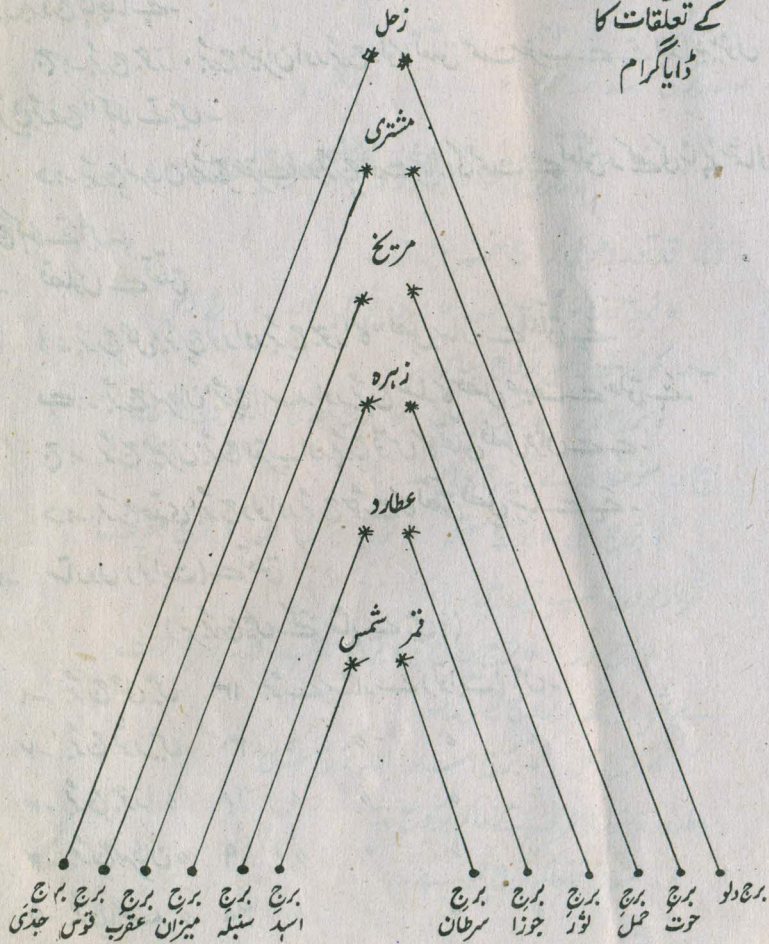 کے تعلقات کا
ڈایاگرام
زحل
مشتری
مریخ
زہرہ
عطارد
قمر شمس
برج دلو
برج حوت
برج حمل
برج ثور
برج جوزا
برج سرطان
برج اسد
برج سنبلہ
برج میزان
برج عقرب
برج قوس
برج جدی